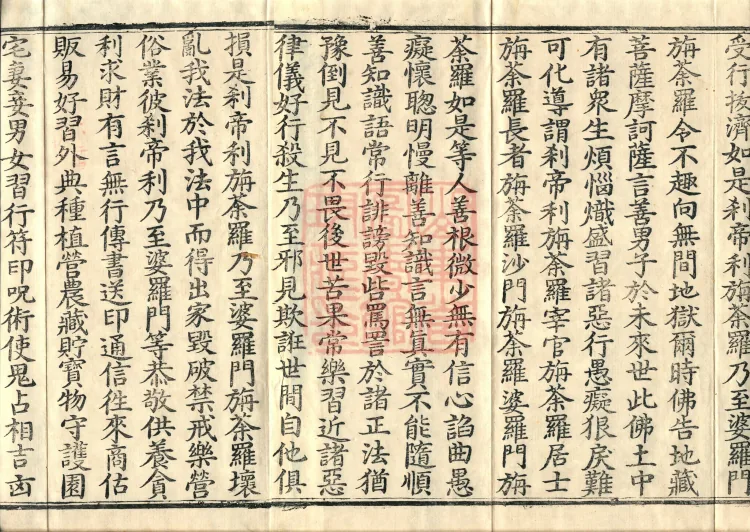 受行拔濟如是剎帝利旃荼羅乃至婆羅門
旃荼羅令不趣向無間地獄爾時佛告地藏
菩薩摩訶薩言善男子於未來世此佛土中
有諸衆生煩惱熾盛習諸惡行愚癡狠戾難
可化導謂剎帝利旃荼羅宰官旃荼羅居士
旃荼羅長者旃荼羅沙門旃荼羅婆羅門旃
荼羅如是等人善根微少無有信心諂曲愚
癡懷聰明慢離善知識言無真實不能隨順
善知識語常行誹謗毀呰罵詈於諸正法猶
豫倒見不見不畏後世苦果常樂習近諸惡
律儀好行殺生乃至邪見欺誑世間自他俱
損是剎帝利旃荼羅乃至婆羅門旃荼羅壞
亂我法於我法中而得出家毀破禁戒樂營
俗業彼剎帝利乃至婆羅門等恭敬供養貪
利求財有言無行傳書送印通信往來商估
販易好習外典種植營農藏貯寶物守護園
宅妻妾男女習行符印呪術使鬼占相吉凶